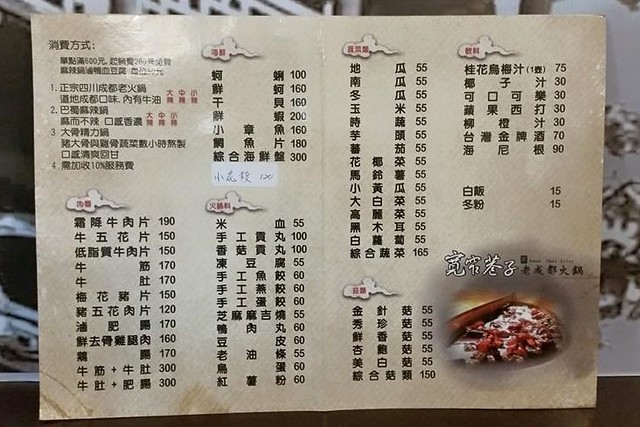 消費方式:
單點滿600元, 起鍋費200元免費
麻辣鍋滷鴨血豆腐
1. 正宗四川成都老火鍋 大 中 小
道地成都口味. 內有牛油 辣 辣 辣
2. 巴蜀麻辣鍋 大 中 小
麻而不辣 口感香濃 辣 辣 辣
3. 大骨精力鍋
豬大骨與雞骨蔬菜數小時熬製
口感清爽回甘
4. 需加收10%服務費
肉類
霜降牛肉片 190
牛五花片 150
低脂質牛肉片 150
牛筋 170
牛肚 170
梅花豬片 150
豬五花肉片 120
滷肥腸 170
鮮去骨雞腿肉 160
鵝腸 170
牛筋+牛肚 300
牛肚+肥腸 300
海鮮
蛤蜊 100
鮮蚵 160
干貝 160
鮮蝦 200
小章魚 160
鯛魚片 180
綜合海鮮盤 300
小花枝 120
火鍋料
米血 55
手工貢丸 100
香菇貢丸 100
凍豆腐 55
手工魚餃 60
手工燕餃 60
手工蛋餃 60
芝麻麻吉燒 55
鴨肉丸 60
豆皮 60
老油條 55
烏蛋 60
紅薯粉 60
蔬菜類
地瓜 55
南瓜 55
冬瓜 55
玉米 55
時蔬 55
芋頭 55
蕃茄 55
花椰菜 55
馬鈴薯 55
小黃瓜 55
大白菜 55
高麗菜 55
黑木耳 55
白蘿蔔 55
綜合蔬菜 165
菇類
金針菇 55
秀珍菇 55
鮮香菇 55
杏鮑菇 55
美白菇 55
綜合菇類 150
飲料
桂花烏梅汁(1壺) 75
椰子汁 30
可口可樂 30
蘋果西打 30
柳橙汁 30
台灣金牌酒 70
海尼根 90
白飯 15
冬粉 15
寬窄巷子
老成都火鍋